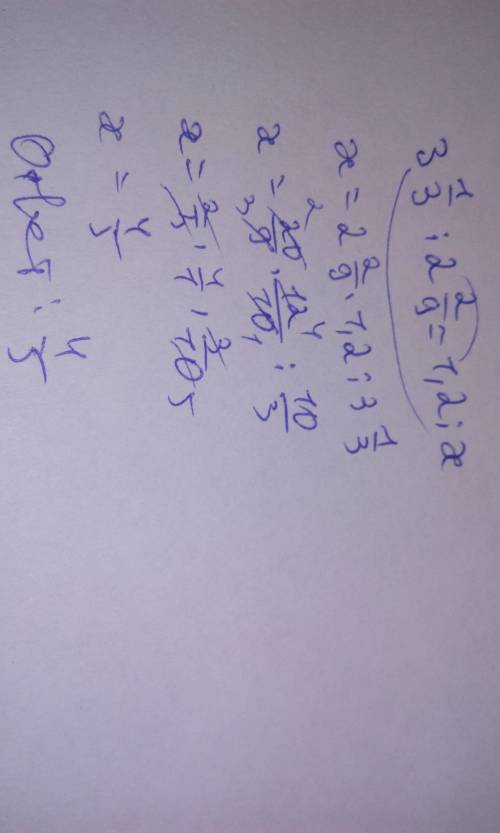 3 1/3 : 2 2/9 = 1,2 : x
x = 2 2/9 · 1,2 : 3 1/3
x = 20/9 · 12/10 : 10/3
x = 2/3 · 4/1 · 3/10
x = 4/5
Ответ : 4/5